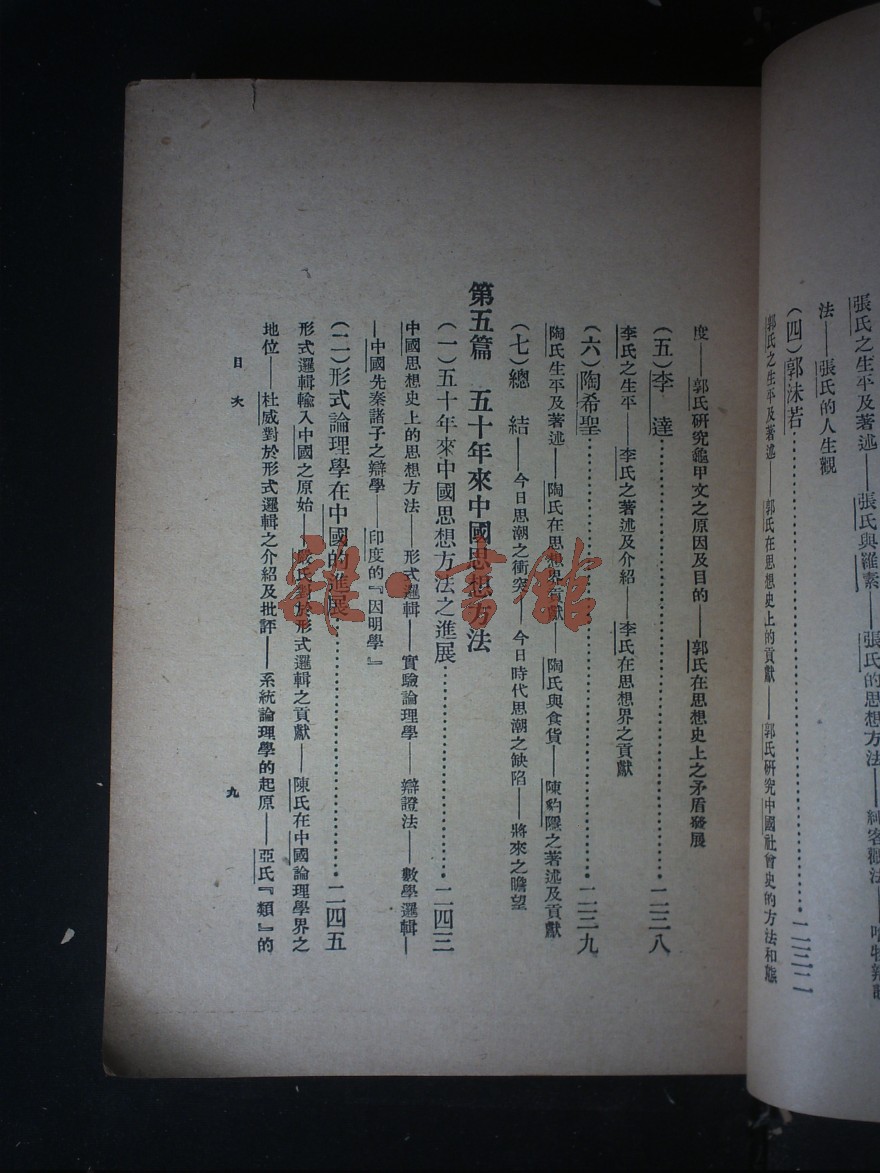 張氏之生平及著述——張氏與羅素——張氏的思想方法——純客觀法——
法——張氏的人生觀
(四)郭沫若……二三二
郭氏之生平及著述——郭氏在思想史上的貢獻——郭氏研究中國社會史的方法和態
度——郭氏研究龜甲文之原因及目的——郭氏在思想史上之矛盾發展
(五)李 達……二三八
李氏之生平——李氏之著述及介紹——李氏在思想界之貢獻
(六)陶希聖……二三九
陶氏生平及著述——陶氏在思想界貢獻——陶氏與食貨——陳豹隱之著述及貢獻
(七)總 結——今日思潮之衝突——今日時代思潮之缺陷——將來之瞻望
第五篇 五十年來中國思想方法
(一)五十年來中國思想方法之進展……二四三
中國思想史上的思想方法——形式邏輯——實驗論理學——辯證法——數學邏輯—
—中國先秦諸子之辯學——印度的『因明學』
(二)形式論理學在中國的進展……二四五
形式邏輯輸入中國之原始——嚴氏對於形式邏輯之貢獻——陳氏在中國論理學界之
地位——杜威對於形式邏輯之介紹及批評——系統論理學的起原——亞氏『類』的
目次
九
雜·書館